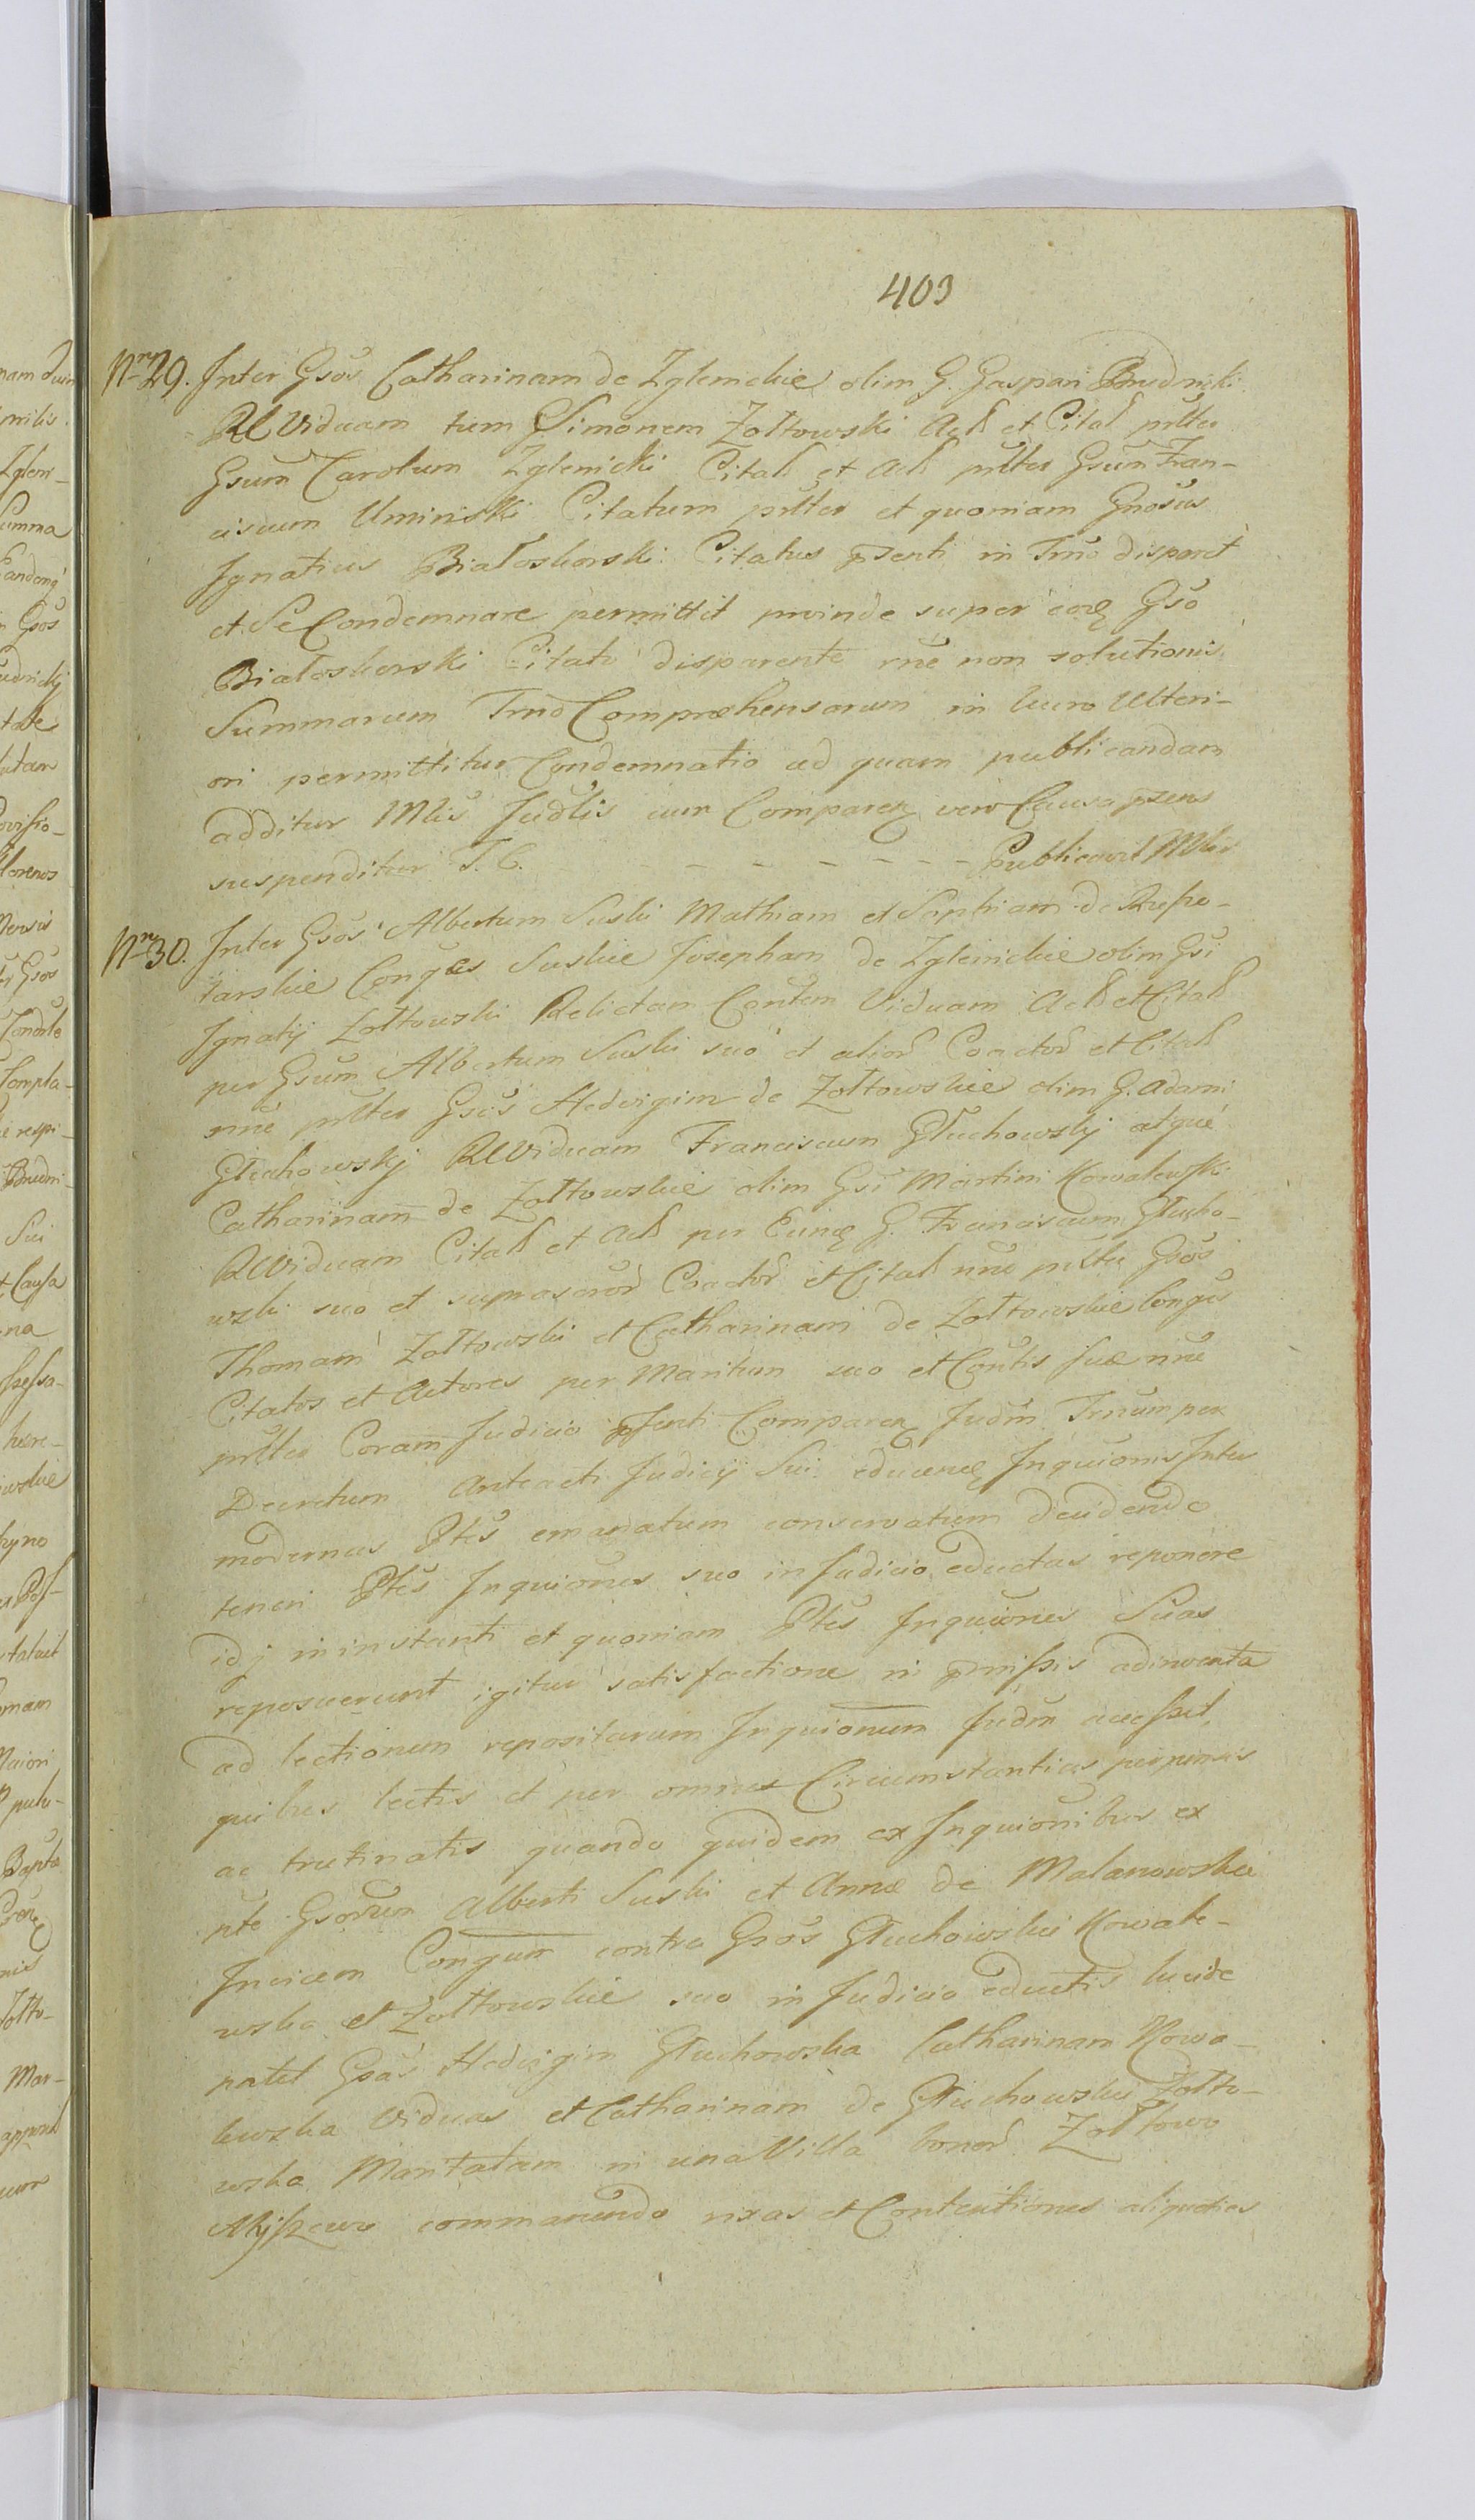 403
Nr̃ 29. Inter Gsos Catharinam de Zglenickie olim G. Gaspari Brudnicki
Rel Viduam tum G Simonem Zołtowski Act et Citat pñlter
Gsum Carolum Zglenicki Citat et Act pñlter Gsum Fran-
ciscum Uminski Citatum pñlter et quoniam Gnosus
Ignatius Białoskorski Citatus psenti in Trno disparet
et Se Condemnare permittit proinde super eoq Gso
Białoskorski Citato disparente rne non solutionis
Summarum Trno Compræhensarum in lucro Ulteri-
ori permittitur Condemnatio ad quam publicandam
additur Mlis Judlis cum Comparen vero Causa psens
suspenditur T. C. - - - - - - - Publicavit Mlis
Nr̃ 30. Inter Gsos Albertum Suski Mathiam et Sophiam de Rępo-
larskie Conges Suskie Josepham de Zglenickie olim Gsi
Ignatij Zołtowski Relictam Contem Viduam Act et Citat
per Gsum Albertum Suski suo et alior Coactor et Citat
nne pñlter Gsos Hedvigim de Zołtowskie olim G. Adami
Głuchowskj Rel Viduam Franciscum Głuchowskj atque
Catharinam de Zołtowskie olim Gsi Martini Kowalewski
Rel Viduam Citat et Act per Eunq G. Franciscum Głucho-
wski suo et suprascror Coactor et Citat nne pñlter Gsos
Thomam Zołtowski et Catharinam de Zołtowskie Conges
Citatos et Actores per Maritum suo et Contis suæ nne
pñlter Coram Judicio psenti Comparen Judm Trnum per
Decretum Anteacti Judicij Sui educenq Inquionis Inter
modernas Ptes emanatum conservatum decidendo
teneri Ptes Inquiones suo in Judicio eductas reponere
idq in instanti et quoniam Ptes Inquiones Suas
reposuerunt igitur satisfactione in pmissis adinventa
ad lectionem repositarum Inquionum Judm accessit,
quibus lectis et per omnes Circumstantias perpensis
ac trutinatis quando quidem ex Inquionibus ex
pte Gsorum Alberti Suski et Annæ de Malanowskie
Invicem Congum contra Gsos Głuchowskie Kowale-
wska et Zołtowskie suo in Judicio eductis lucide
patet Gsas Hedvigim Głuchowska Catharinam Kowa-
lewska Viduas et Catharinam de Głuchowskie Zołto-
wska Maritatam in una Villa bonor Zołtowo
commanendo rixas et Contentiones aliquoties